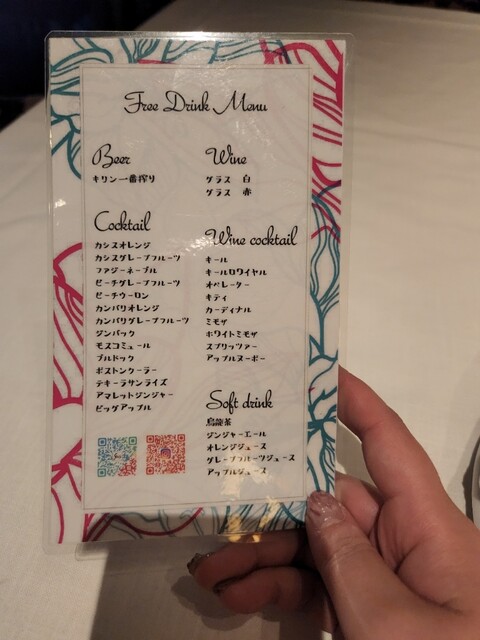 Free Drink Menu
Beer
キリン一番搾り
Wine
グラス 白
グラス 赤
Cocktail
カシスオレンジ
カシスグレープフルーツ
ファジーネーブル
ピーチグレープフルーツ
ピーチウーロン
カンパリオレンジ
カンパリグレープフルーツ
ジンバック
モスコミュール
ブルドック
ボストンクーラー
テキーラサンライズ
アマレットジンジャー
ビッグアップル
Wine cocktail
キール
キールロワイヤル
オペレーター
キティ
カーディナル
ミモザ
ホワイトミモザ
スプリッツァー
アップルヌーボー
Soft drink
烏龍茶
ジンジャーエール
オレンジジュース
グレープフルーツジュース
アップルジュース